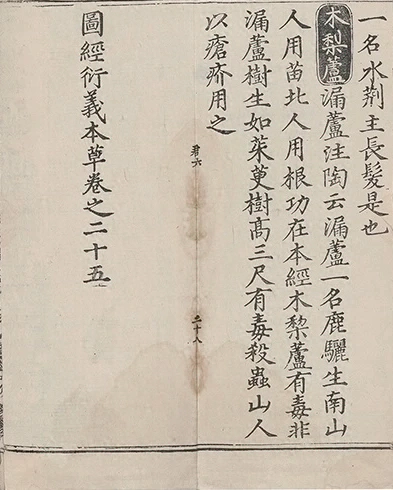 一名水荆主長髮是也
木梨蘆漏蘆注陶云漏蘆一名鹿驪生南山
人用苗北人用根功在本經木梨蘆有毒非
漏蘆樹生如茱萸樹高三尺有毒殺蟲山人
以瘡疥用之
君六
二十八
圖經衍義本草卷之二十五